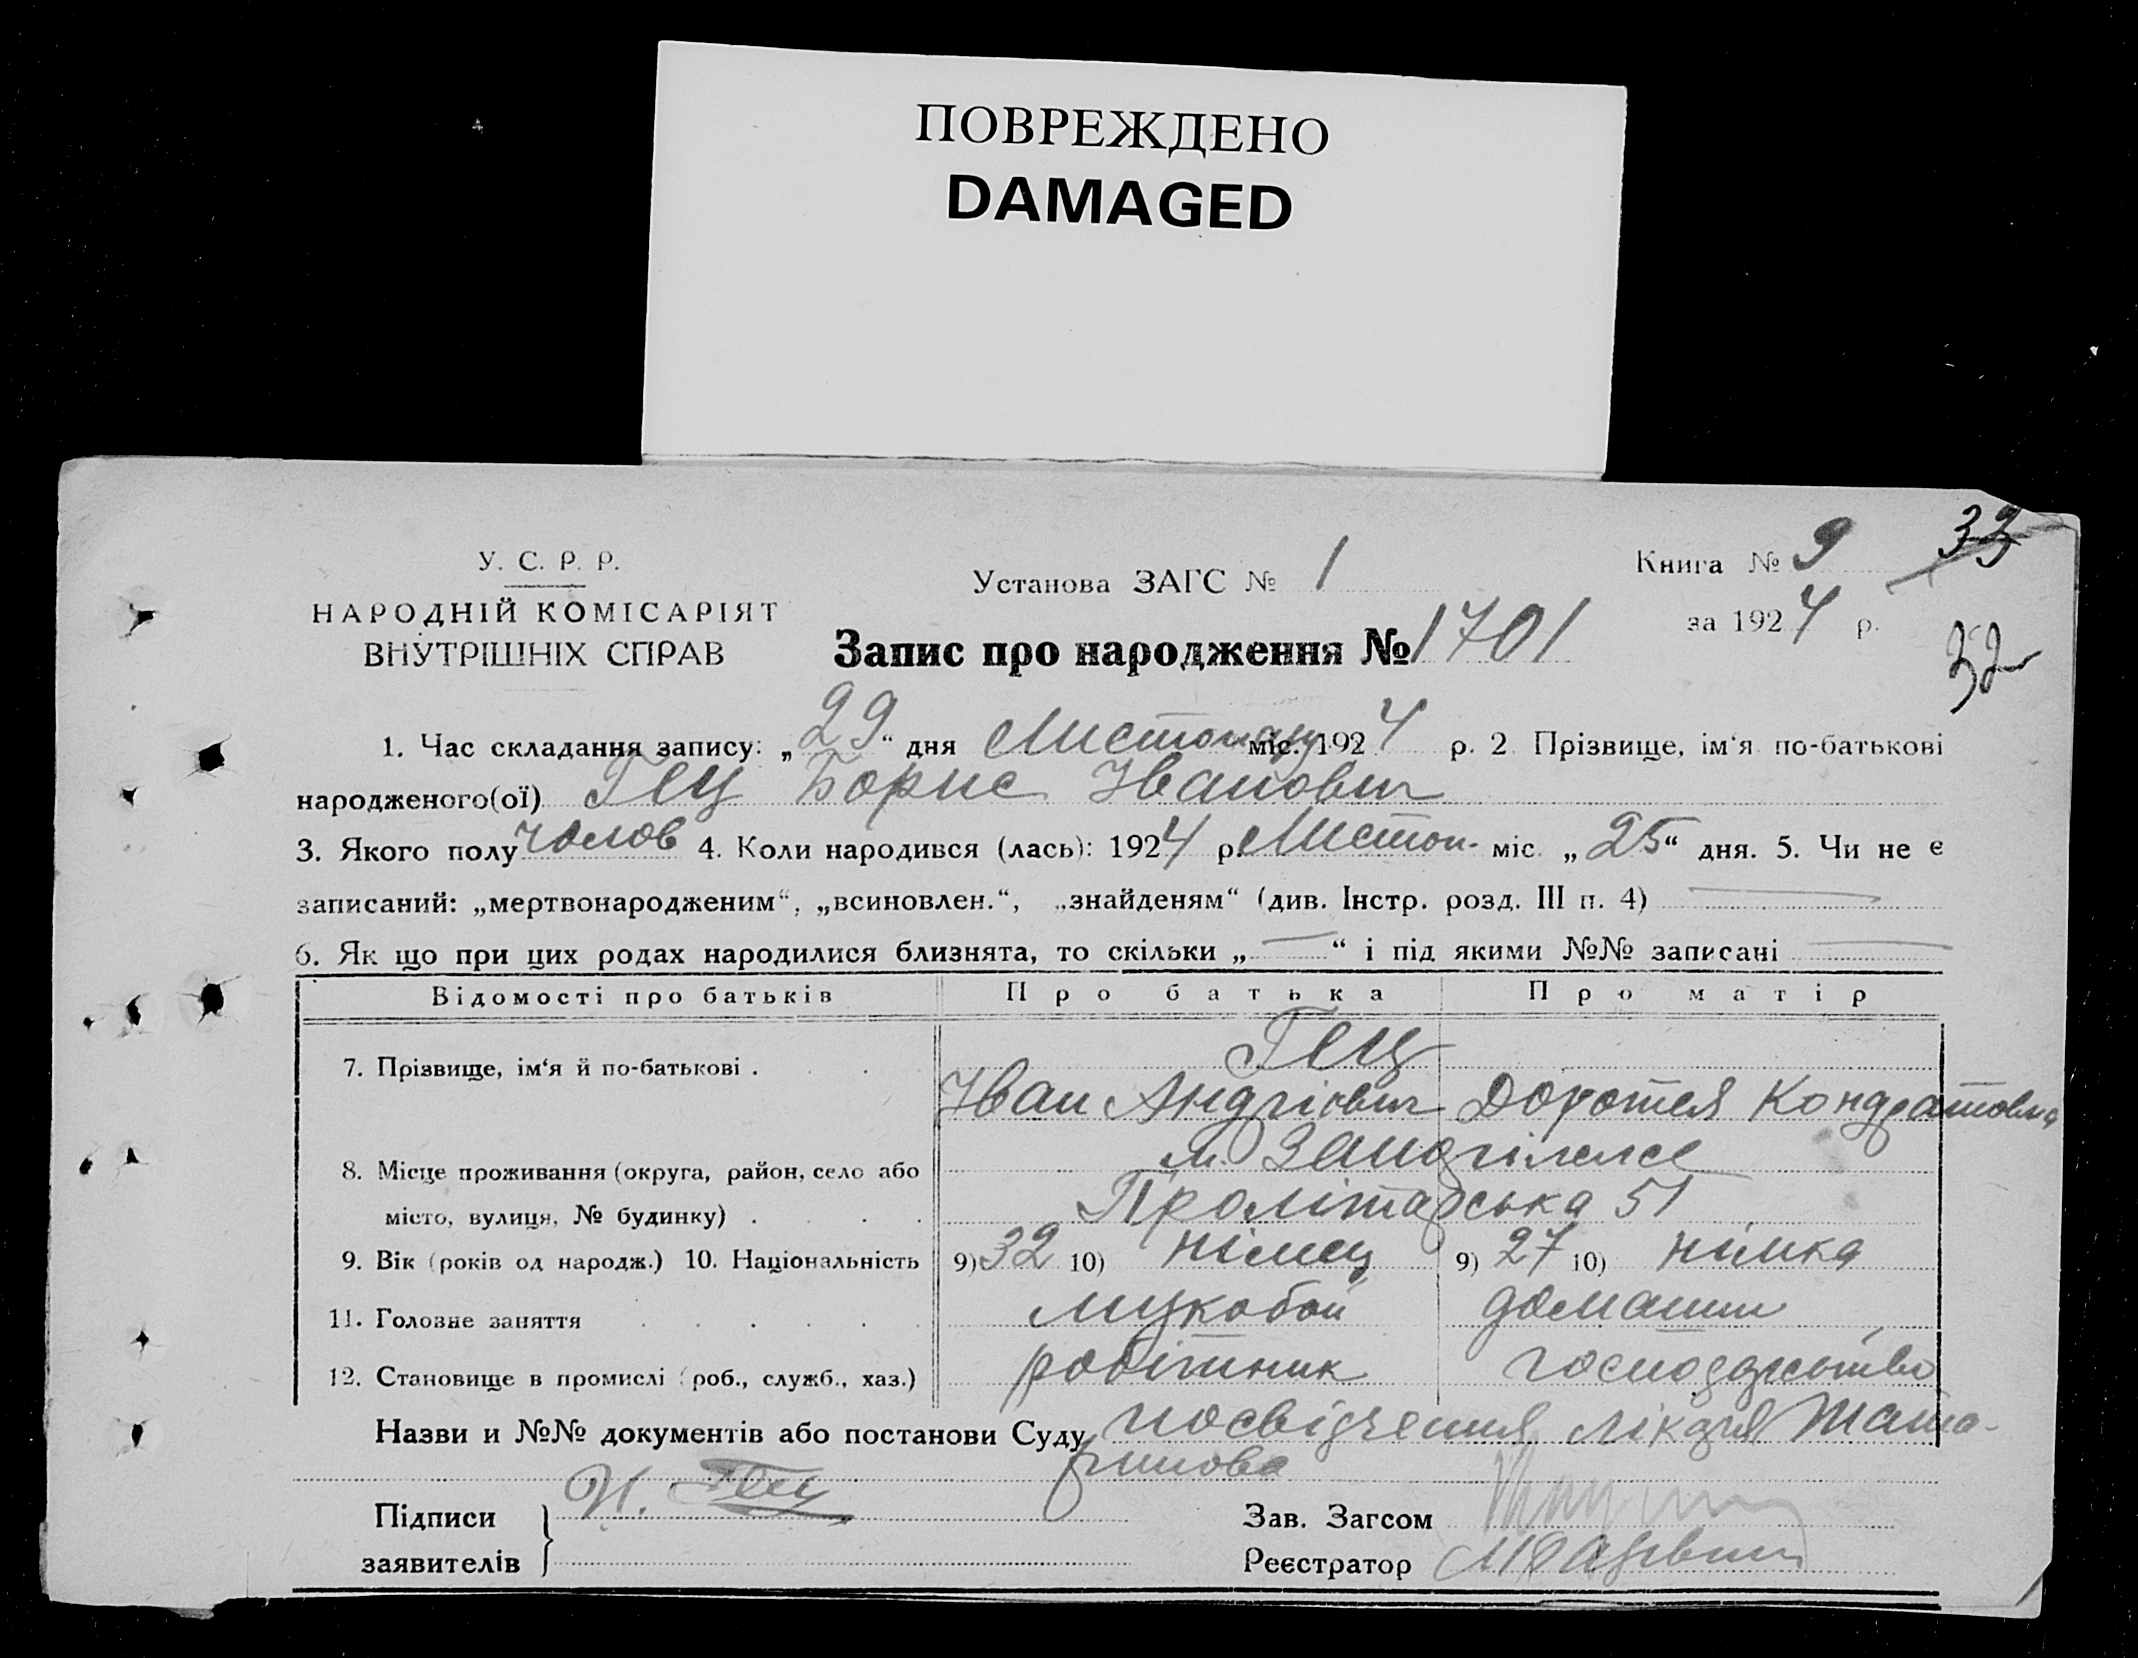 ПОВРЕЖДЕНО
DAMAGED
У. С. Р. Р.
НАРОДНІЙ КОМІСАРІЯТ
ВНУТРІШНІХ СПРАВ
Установа ЗАГС № 1
Книга № 9
33
за 1924 р.
32
Запис про народження № 1701
1. Час складання запису: „29“ дня Листопаду міс. 1924 р. 2 Прізвище, ім‘я по-батькові
народженого(ої) Гец Борис Іванович
3. Якого полу чолов 4. Коли народився (лась): 1924 р. Листоп. міс. „25“ дня. 5. Чи не є
записаний: „мертвонародженим“, „всиновлен.“, „знайденям“ (див. Інстр. розд. III п. 4)
6. Як що при цих родах народилися близнята, то скільки „—“ і під якими №№ записані
Відомості про батьків Про батька Про матір
Гец
7. Прізвище, ім‘я й по-батькові . . .
Іван Андрієвич Доротея Кондратовна
м.
8. Місце проживання (округа, район, село або
місто, вулиця, № будинку) . . . .
Пролітарська 51
9. Вік (років од народж.) 10. Національність 9) 32 10) німец 9) 27 10) німка
11. Головне заняття . . . . . . мукобой домашнє
12. Становище в промислі (роб., служб., хаз.) робітник господарство
Назви и №№ документів або постанови Суду посвідчення лікаря Тата-
ринова
Підписи И. Гец Зав. Загсом
заявителів Реєстратор